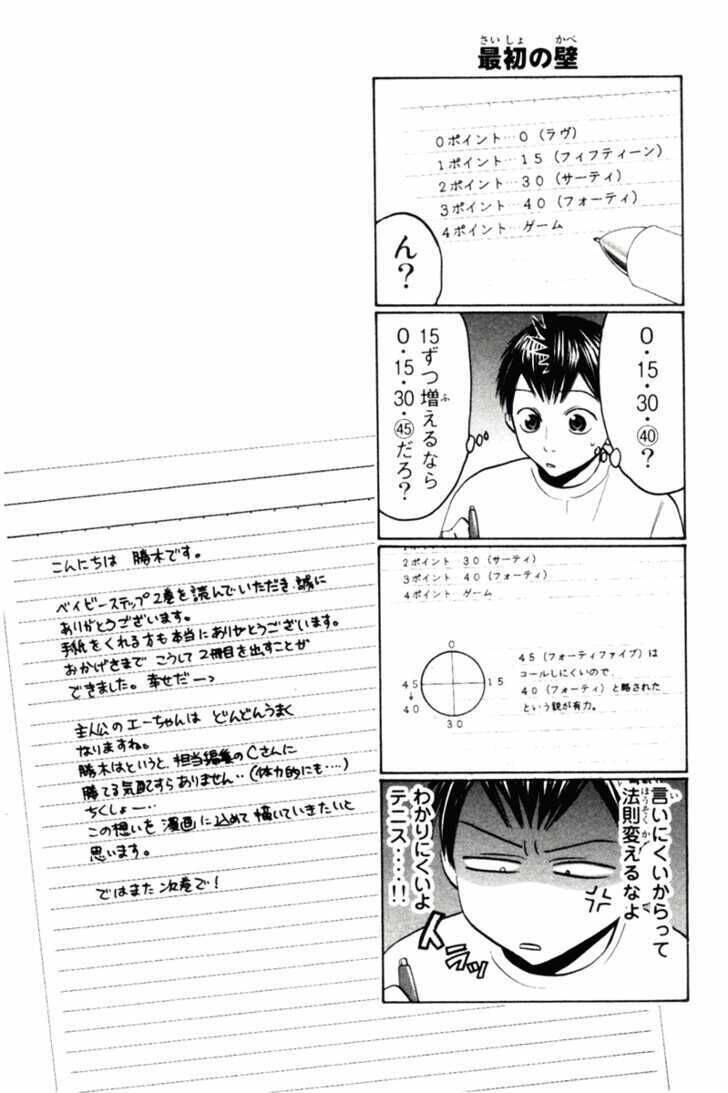 最初の壁
さいしょ かべ
0ポイント…0（ラヴ）
1ポイント…15（フィフティーン）
2ポイント…30（サーティ）
3ポイント…40（フォーティ）
4ポイント…ゲーム
ん？
0・15・30・㊵？
15ずつ増えるなら
ふ
0・15・30・㊺だろ？
2ポイント 30（サーティ）
3ポイント 40（フォーティ）
4ポイント ゲーム
0
15
30
45
↓
40
45（フォーティファイブ）は
コールしにくいので、
40（フォーティ）と略された
という説が有力。
言いにくいからって
い
法則変えるなよ
ほうそくか
わかりにくいよ
テニス……!!
イラッ
こんにちは 勝木です。
ベイビーステップ2巻を読んでいただき、誠に
ありがとうございます。
手紙をくれる方も本当にありがとうございます。
おかげさまで こうして2冊目を出すことが
できました。幸せだーっ
主人公のエーちゃんは どんどんうまく
なりますね。
勝木はというと、担当編集のCさんに
勝てる気配すらありません‥（体力的にも‥‥）
ちくしょー…
この想いを漫画に込めて描いていきたいと
思います。
ではまた次巻で！